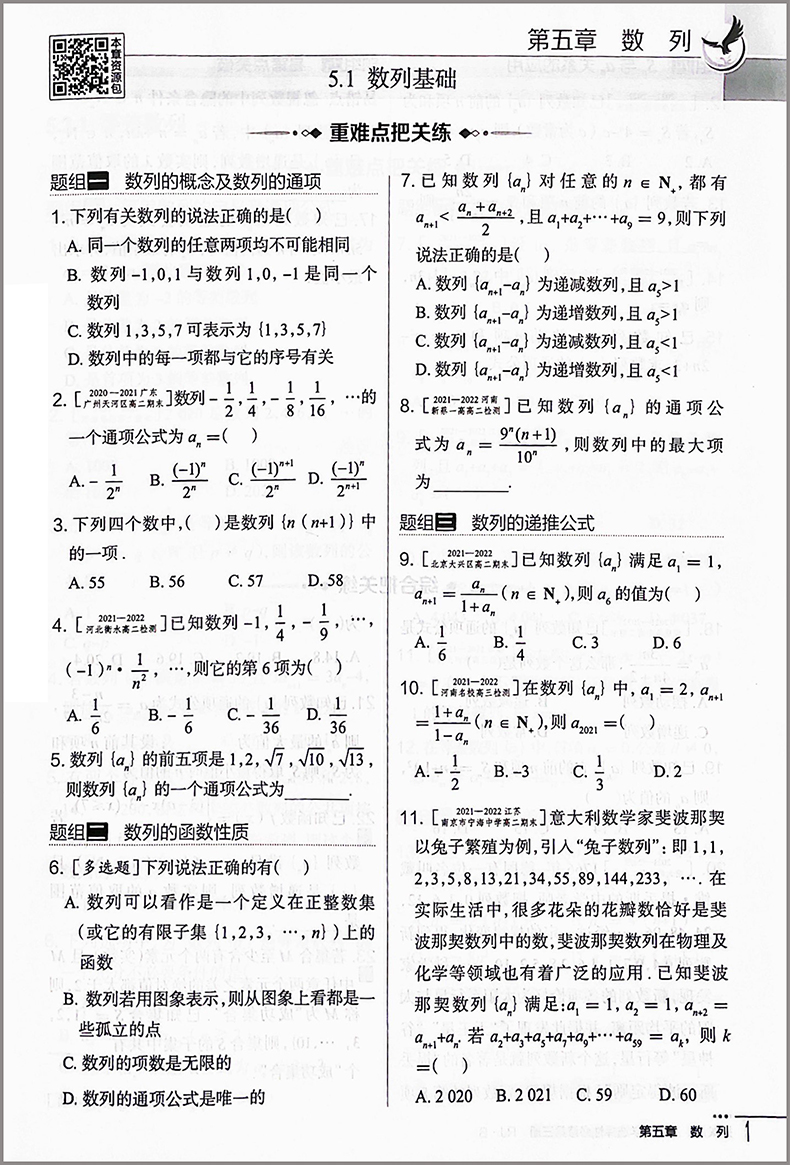 本章资源包
第五章 数 列
5.1 数列基础
重难点把关练
题组一 数列的概念及数列的通项
1. 下列有关数列的说法正确的是( )
A. 同一个数列的任意两项均不可能相同
B. 数列-1,0,1与数列1,0,-1是同一个
数列
C. 数列1,3,5,7可表示为{1,3,5,7}
D. 数列中的每一项都与它的序号有关
2. [2020—2021广东广州天河区高二期末]数列-1/2,1/4,-1/8,1/16,…的
一个通项公式为aₙ=( )
A. -1/2ⁿ B. (-1)ⁿ/2ⁿ C. (-1)ⁿ⁺¹/2ⁿ D. (-1)ⁿ/2ⁿ⁺¹
3. 下列四个数中,( )是数列{n(n+1)}中
的一项.
A. 55 B. 56 C. 57 D. 58
4. [2021—2022河北衡水高二检测]已知数列-1,1/4,-1/9,…,
(-1)ⁿ·1/n²,…,则它的第6项为( )
A. 1/6 B. -1/6 C. -1/36 D. 1/36
5. 数列{aₙ}的前五项是1,2,√7,√10,√13,
则数列{aₙ}的一个通项公式为________.
题组二 数列的函数性质
6. [多选题]下列说法正确的有( )
A. 数列可以看作是一个定义在正整数集
(或它的有限子集{1,2,3,…,n})上的
函数
B. 数列若用图象表示,则从图象上看都是一
些孤立的点
C. 数列的项数是无限的
D. 数列的通项公式是唯一的
7. 已知数列{aₙ}对任意的n∈N₊,都有
aₙ₊₁<(aₙ+aₙ₊₂)/2,且a₁+a₂+…+a₉=9,则下列
说法正确的是( )
A. 数列{aₙ₊₁-aₙ}为递减数列,且a₅>1
B. 数列{aₙ₊₁-aₙ}为递增数列,且a₅>1
C. 数列{aₙ₊₁-aₙ}为递减数列,且a₅<1
D. 数列{aₙ₊₁-aₙ}为递增数列,且a₅<1
8. [2021—2022河南新蔡一高高二检测]已知数列{aₙ}的通项公
式为aₙ=9ⁿ(n+1)/10ⁿ,则数列中的最大项
为________.
题组三 数列的递推公式
9. [2021—2022北京大兴区高二期末]已知数列{aₙ}满足a₁=1,
aₙ₊₁=aₙ/(1+aₙ)(n∈N₊),则a₆的值为( )
A. 1/6 B. 1/4 C. 3 D. 6
10. [2021—2022河南名校高三检测]在数列{aₙ}中,a₁=2,aₙ₊₁
=(1+aₙ)/(1-aₙ)(n∈N₊),则a₂₀₂₁=( )
A. -1/2 B. -3 C. 1/3 D. 2
11. [2021—2022江苏南京市宁海中学高二期末]意大利数学家斐波那契
以兔子繁殖为例,引入“兔子数列”:即1,1,
2,3,5,8,13,21,34,55,89,144,233,….在
实际生活中,很多花朵的花瓣数恰好是斐
波那契数列中的数,斐波那契数列在物理及
化学等领域也有着广泛的应用.已知斐波
那契数列{aₙ}满足:a₁=1,a₂=1,aₙ₊₂=
aₙ₊₁+aₙ.若a₂+a₃+a₅+a₇+a₉+…+a₅₉=aₖ,则k
=( )
A. 2 020 B. 2 021 C. 59 D. 60
第五章 数 列 1